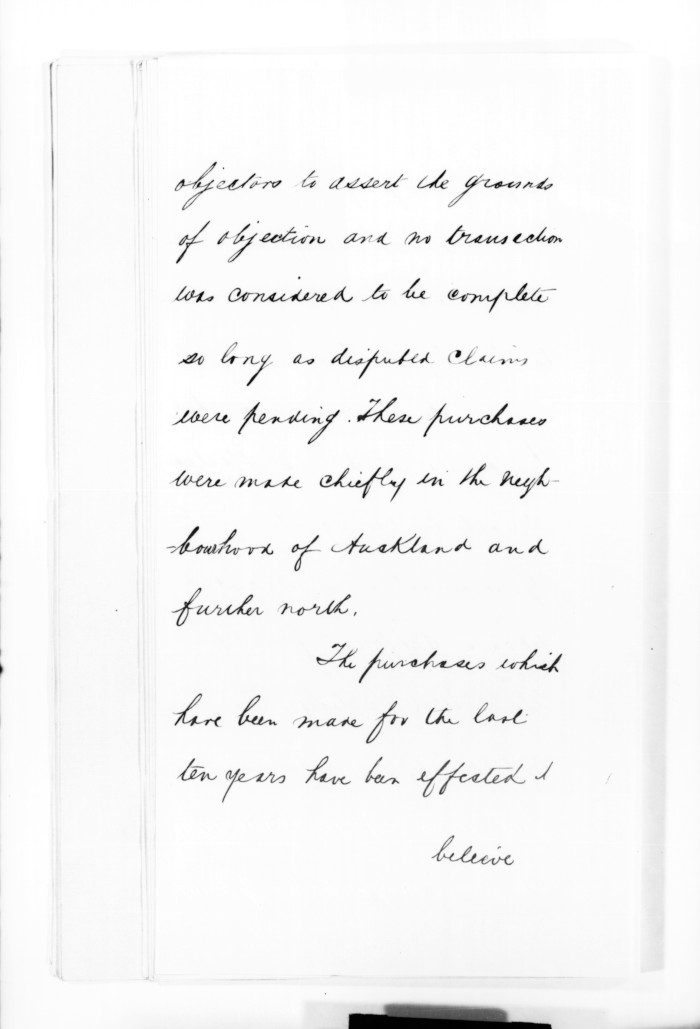 objectors to assert the grounds
of objection and no transaction
was considered to be complete
so long as disputed claims
were pending. These purchases
were made chiefly in the neigh-
-bourhood of Auckland and
further north.
The purchases which
have been made for the last
ten years have been effected I
beleive